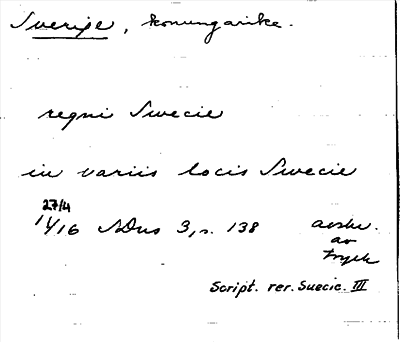 Sverige, konungarike.
regni Swecie
in variis locis Swecie
27/4
1416 SDns 3, s. 138 avskr.
av
tryck
Script. rer. Suecic. III